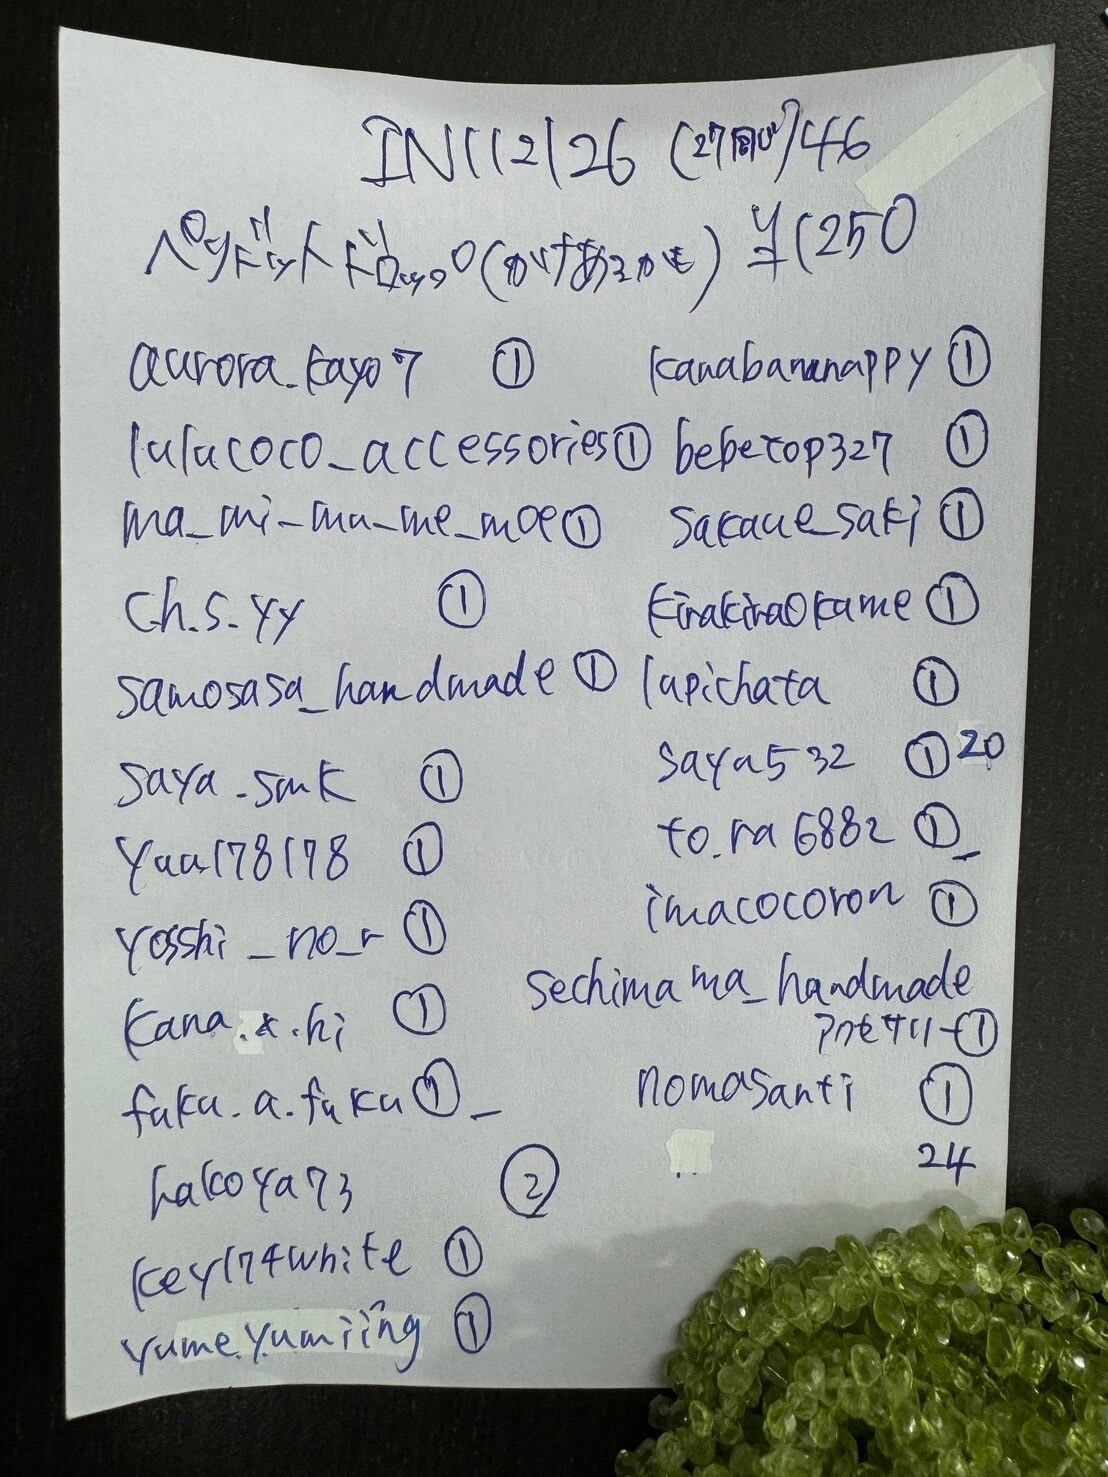 IN112126 (27前)/46
ペリドットドロップ(かけあるかも) ¥1250
aurora.kayo7 ①
lulucoco_accessories①
ma_mi_mu_me_moe①
ch.s.yy ①
samosasa_handmade ①
saya.smk ①
yuu178178 ①
yosshi_no_r ①
kana.x.hi ①
fuku.a.fuku①_
hakoya73 ②
key174white ①
yume.yumiing ①
kanabananappy ①
bebetop327 ①
sakaue_saki ①
kirakiraokame ①
lapichata ①
saya532 ① 20
to.ra6882 ①_
imacocoron ①
sechimama_handmade
アクセサリー①
nomasanti ①
24